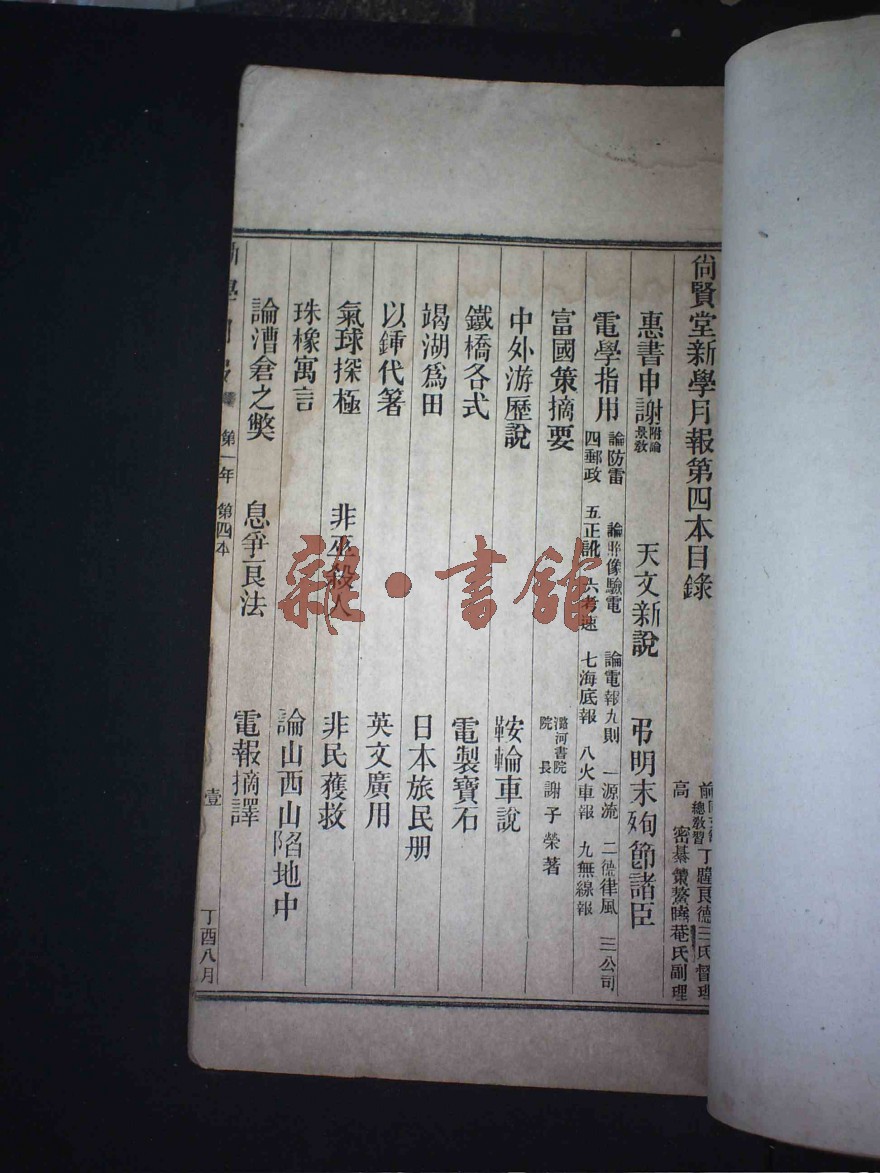 尙賢堂新學月報第四本目錄
總敎習丁韙良德三氏督理
高密綦策鰲曉巷氏副理
惠書申謝 附論景敎 天文新說 弔明末殉節諸臣
電學指用 論防雷 論眸像驗電 論電報九則 一源流 二德律風 三公司
四郵政 五正訛 六考速 七海底報 八火車報 九無線報
富國策摘要 潞河書院院長 謝子榮著
中外游歷說 鞍輪車說
鐵橋各式 電製寶石
竭湖爲田 日本旅民册
以鍾代箸 英文廣用
氣球探極 非巫殺人 非民獲救
珠橡寓言 論山西山陷地中
論漕倉之獘 息爭良法 電報摘譯
第一年 第四本 壹 丁酉八月
雜·書館